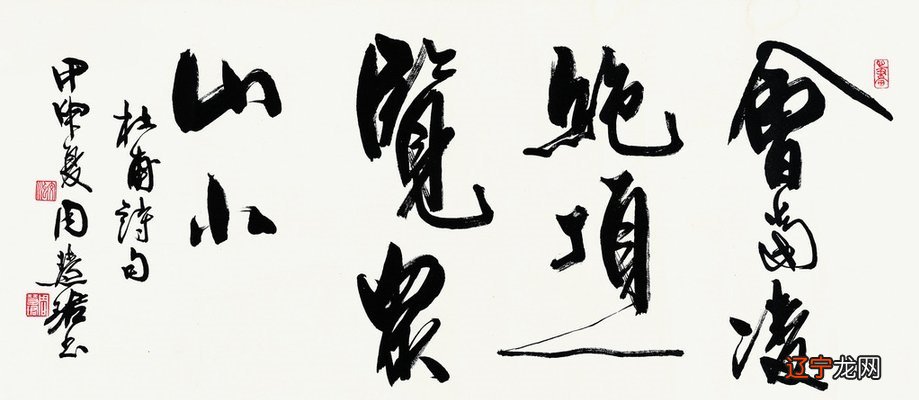 會當凌
絶頂一
覽衆
山小
杜甫詩句
甲申夏周慧珺書
辽宁龙网